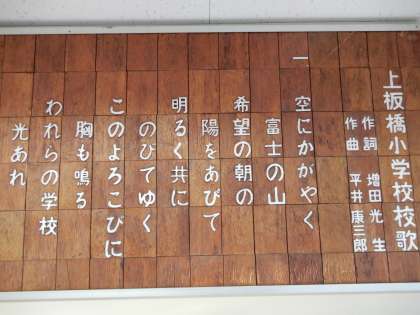 上板橋小学校校歌
作詞 増田光生
作曲 平井康三郎
一 空にかがやく
富士の山
希望の朝の
陽をあびて
明るく共に
のびてゆく
このよろこびに
胸も鳴る
われらの学校
光あれ